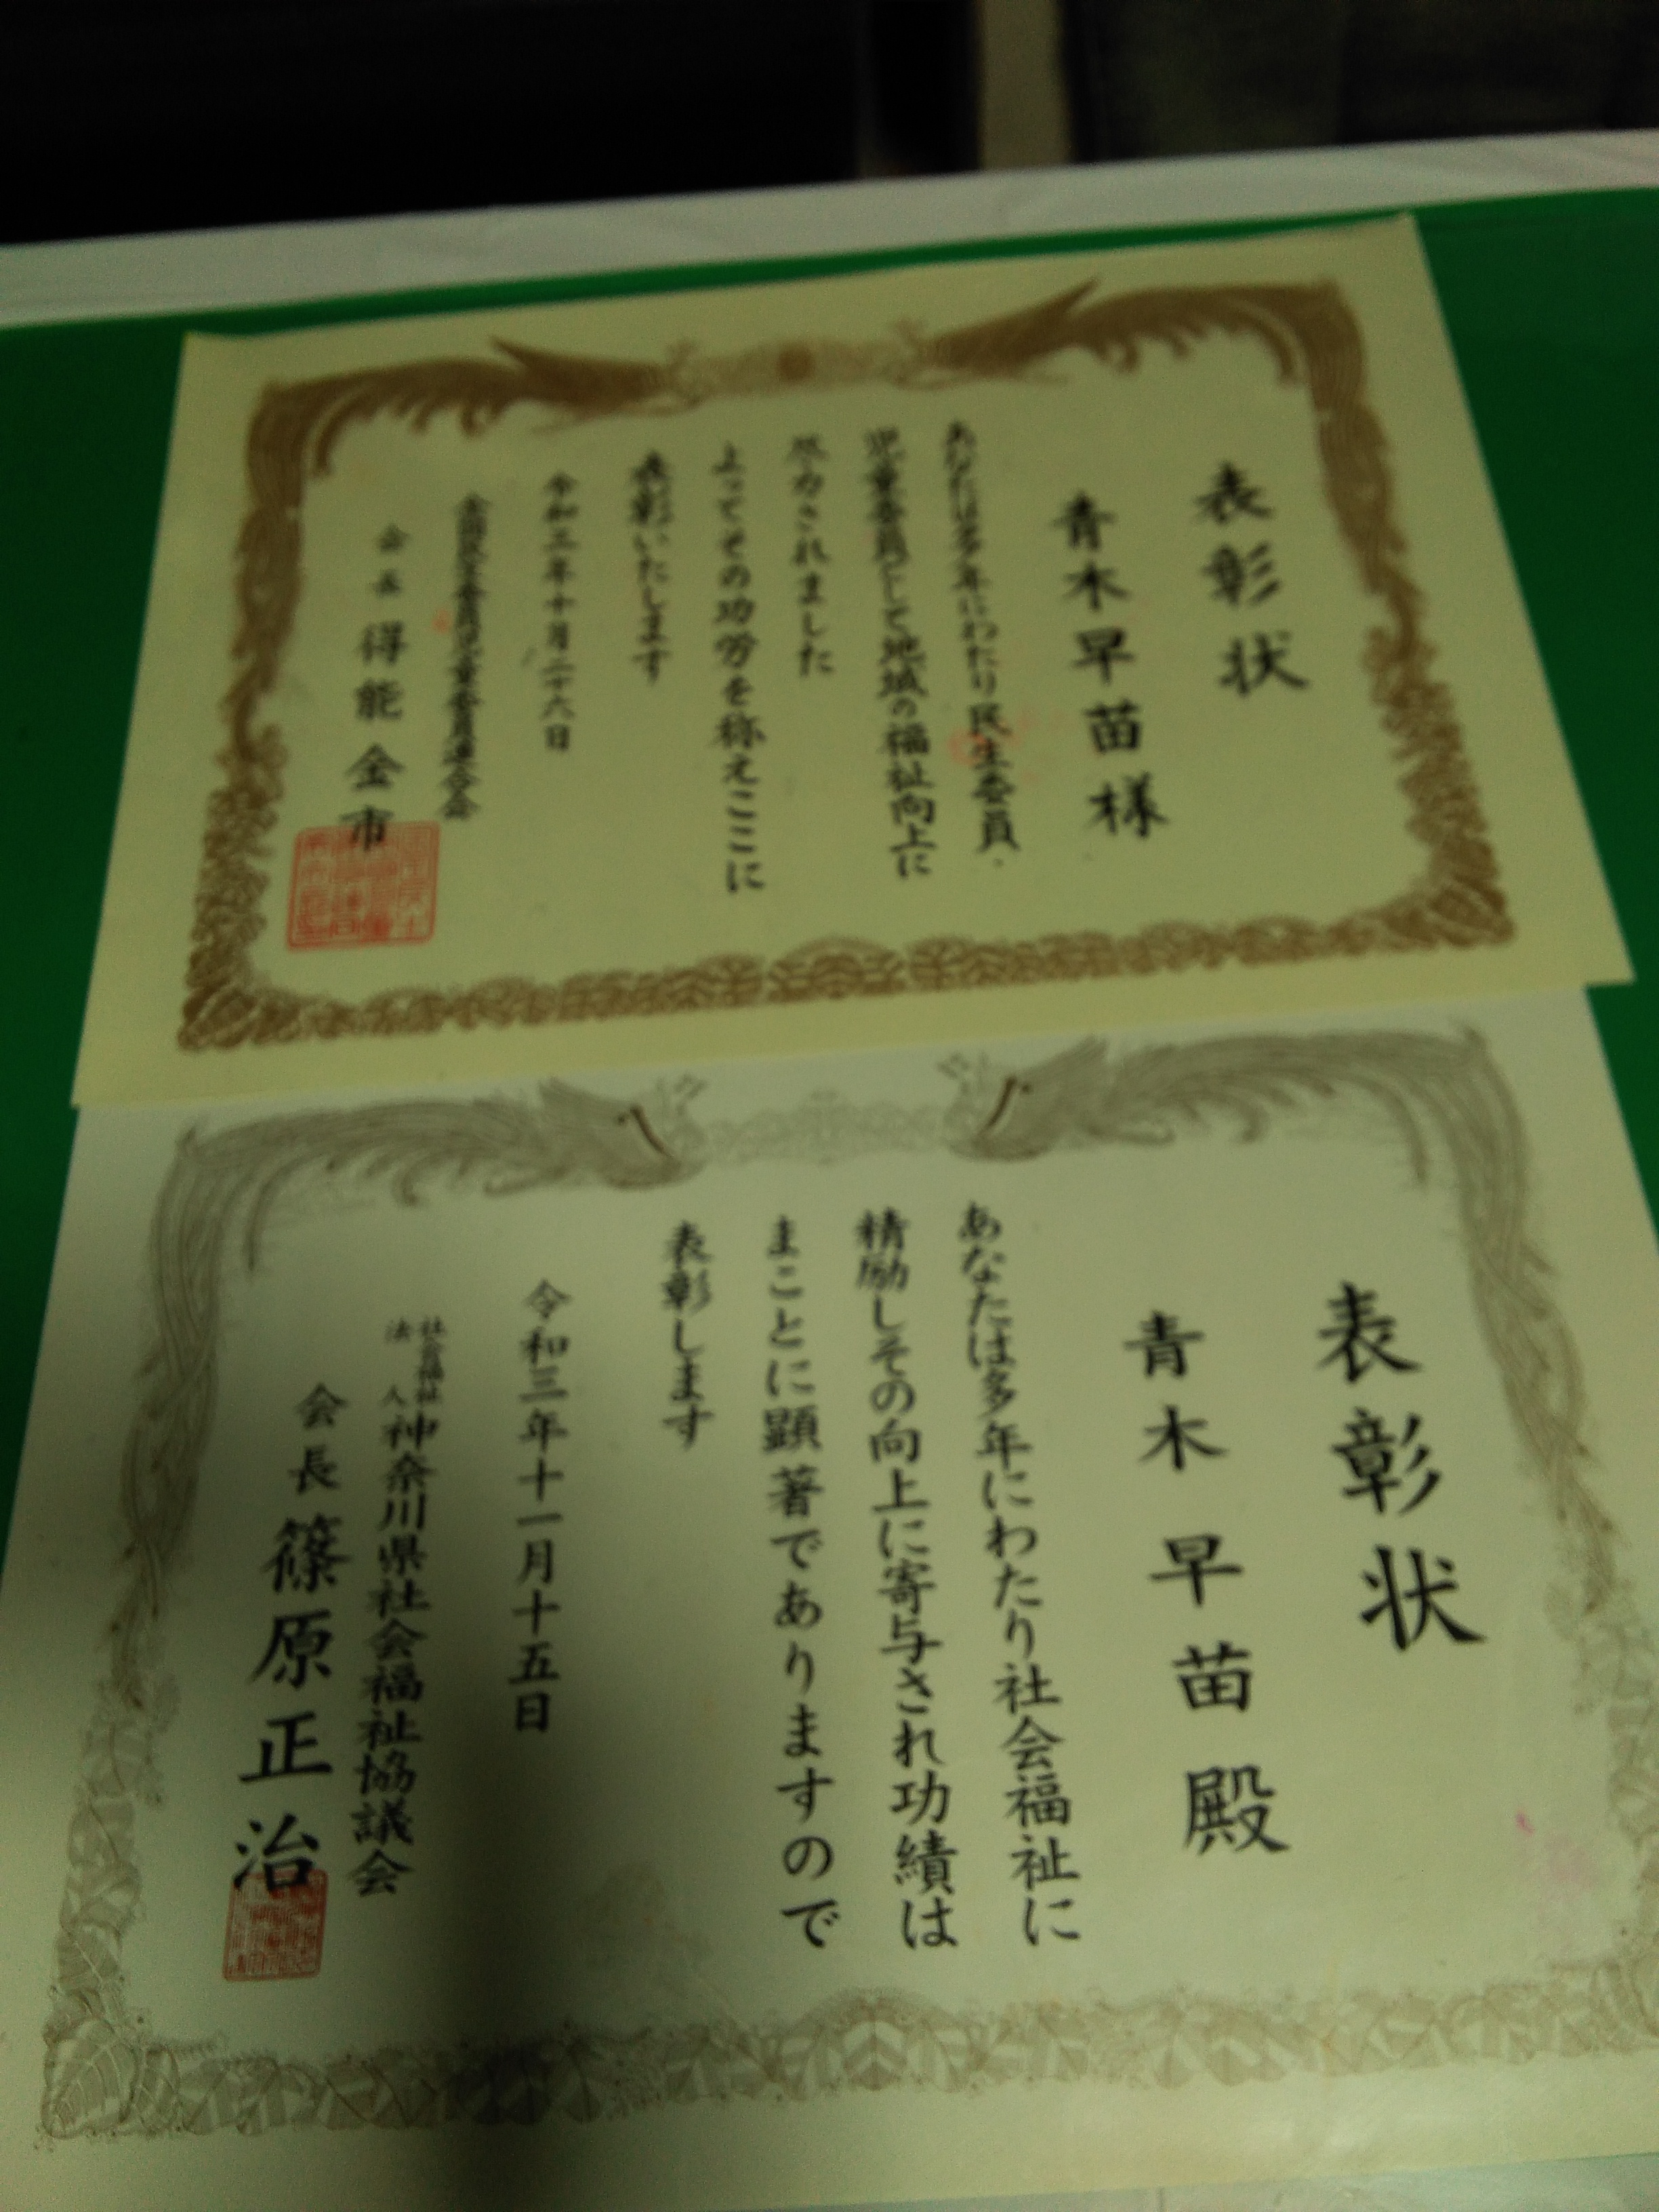 表彰状
青木早苗様
あなたは多年にわたり民生委員・
児童委員として地域の福祉向上に
尽力されました
よってその功労を称えここに
表彰いたします
令和三年十月二十六日
全国民生委員児童委員連合会
会長 得能金市
表彰状
青木早苗殿
あなたは多年にわたり社会福祉に
精励しその向上に寄与され功績は
まことに顕著でありますので
表彰します
令和三年十一月十五日
社会福祉法人 神奈川県社会福祉協議会
会長 篠原正治